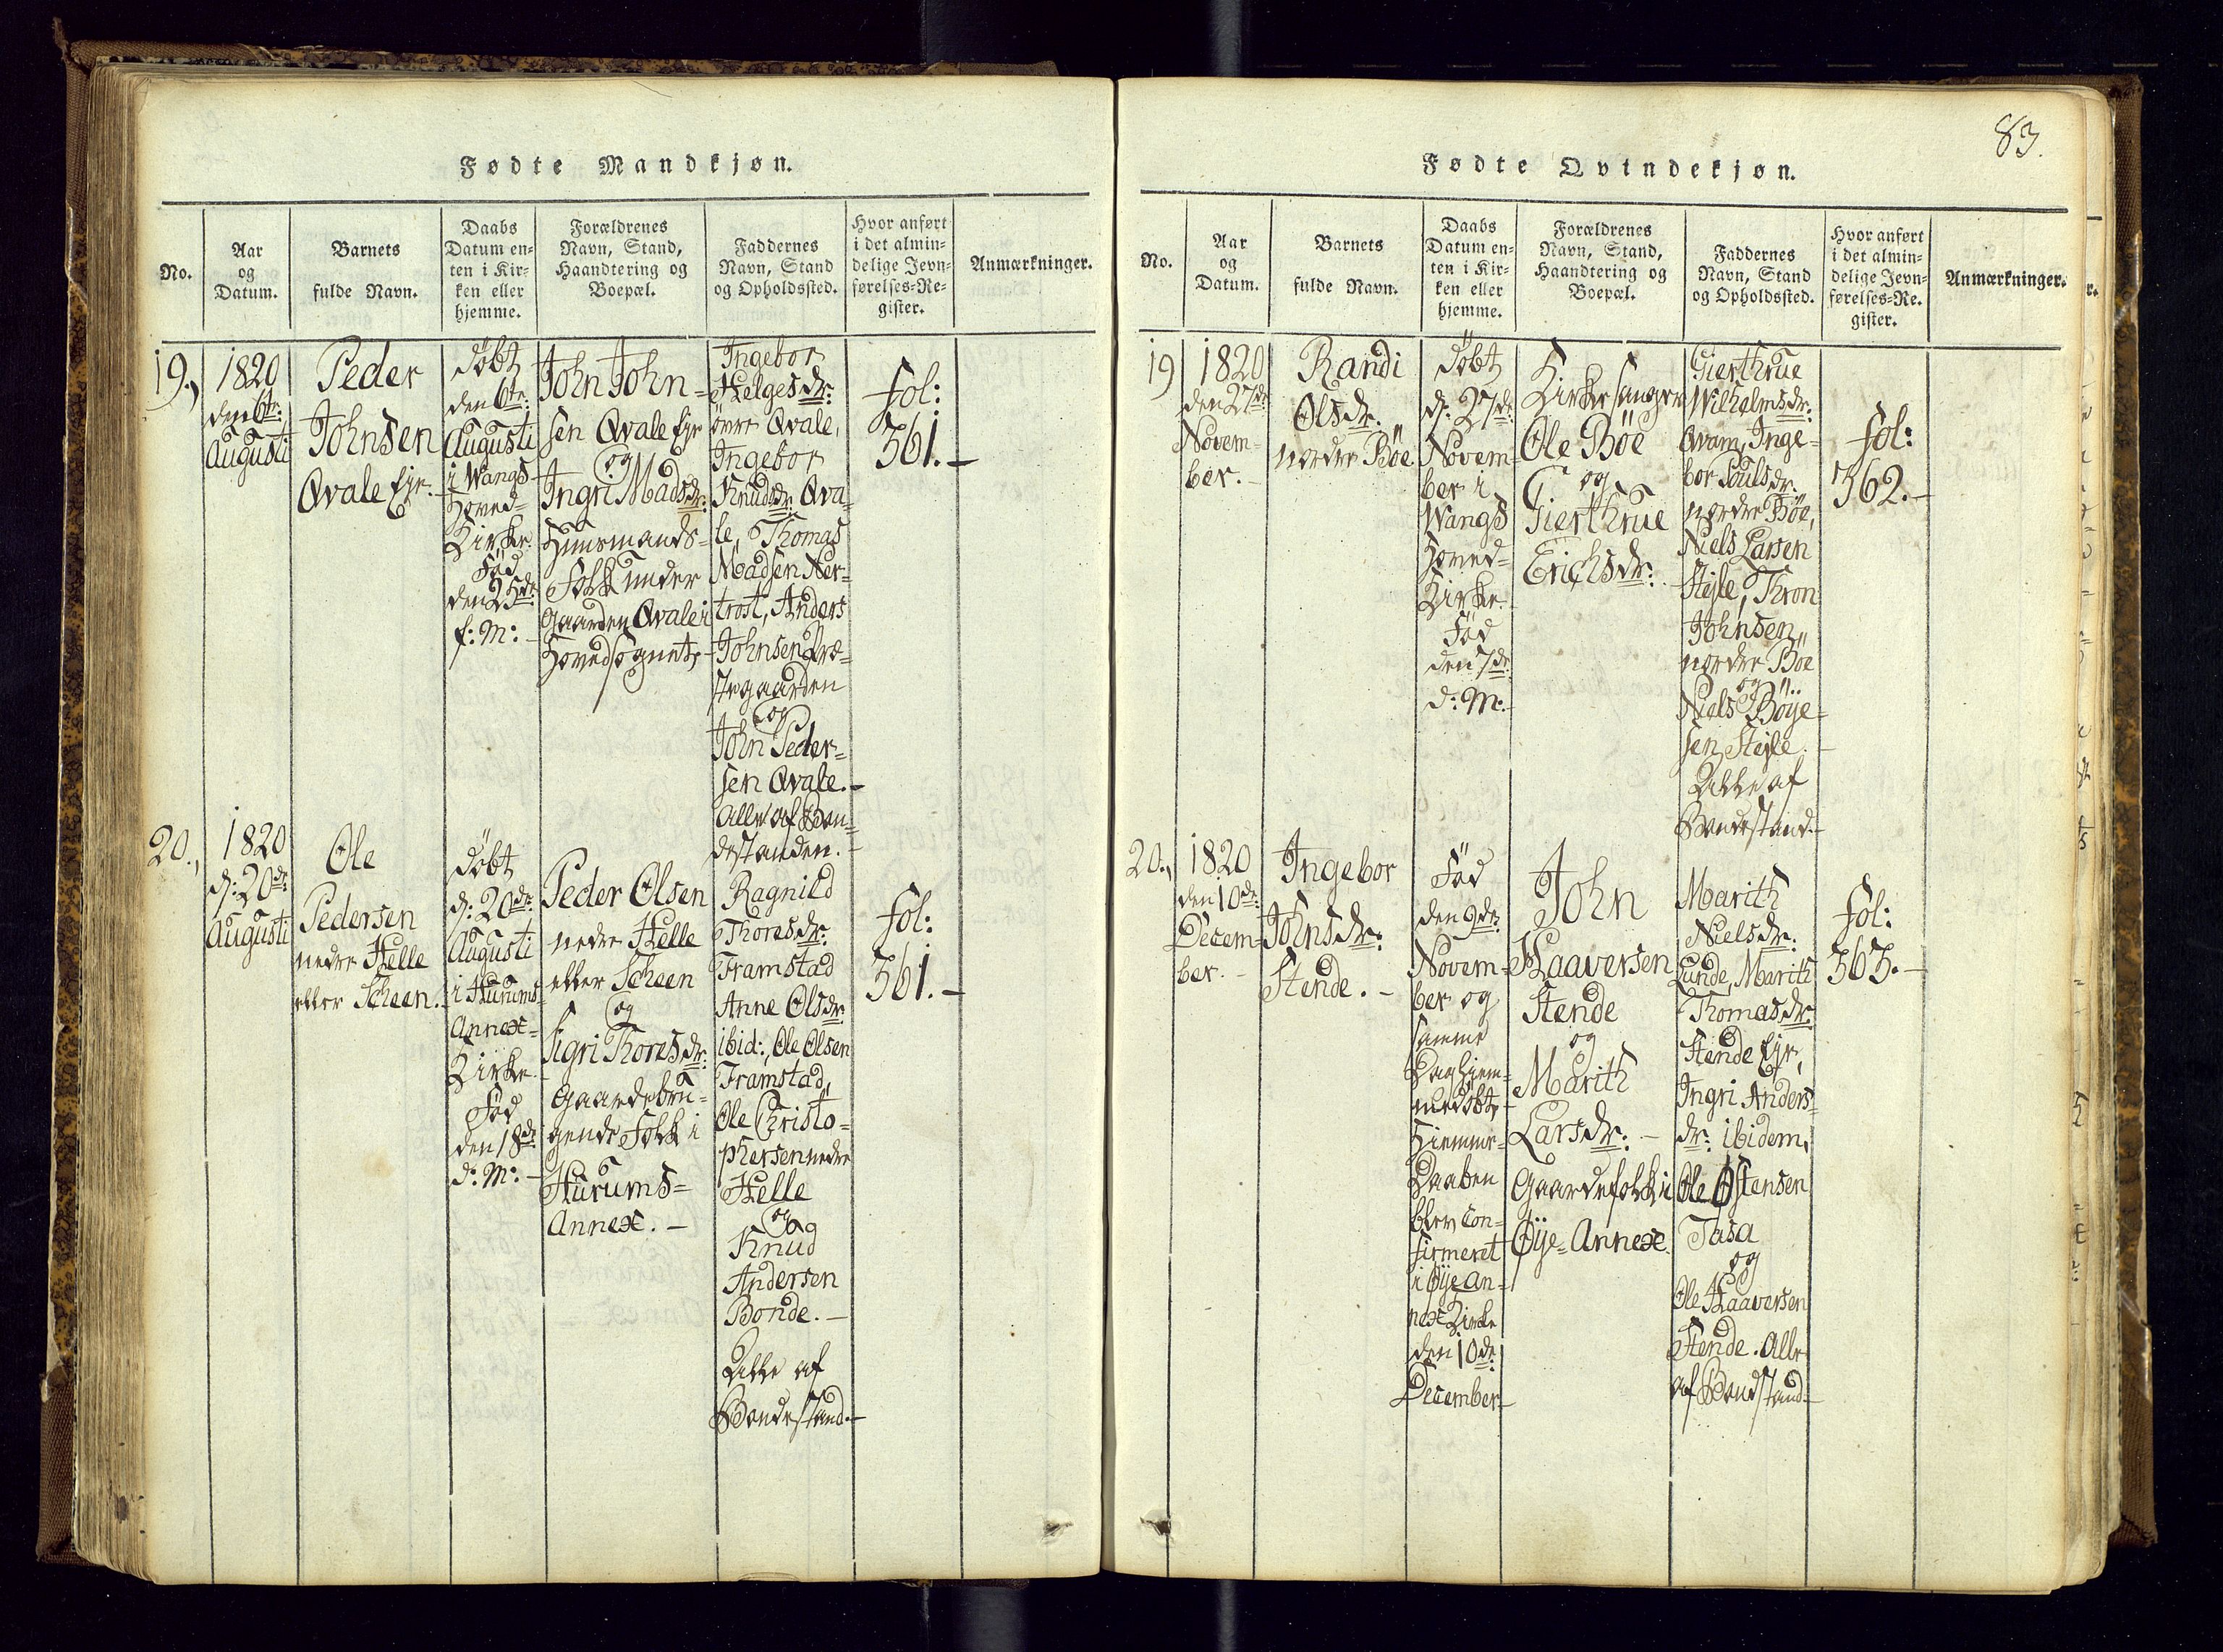 Fødte Mandkjøn.
No.
Aar
og
Datum.
Barnets
fulde Navn.
Daabs
Datum en-
ten i Kir-
ken eller
hjemme.
Forældrenes
Navn, Stand,
Haandtering og
Boepæl.
Faddernes
Navn, Stand
og Opholdssted.
Hvor anført
i det almin-
delige Jevn-
førelses-Re-
gister.
Anmærkninger.
19.,
1820
den 6te:
Augusti
Peder
Johnsen
Qvale Eje.
Døbt
den 6te:
Augusti
i Wangs
Hoved-
Kirke.
Fød
den 25de
f: M:
John John-
sen Qvale Eje
og
Ingri Madsdr:
Huusmands-
Folk under
Gaarden Qvale i
Hovedsognet.
Ingebor
Helgesdr:
øvre Qvale,
Ingebor
Knudsdr: Qva-
le, Thomas
Madsen Ner-
trost, Anders
Johnsen Præ-
stegaarden
og
John Peder-
sen Qvale.
Alle af Bon-
destanden.
fol:
361.
20.,
1820
d: 20de
Augusti
Ole
Pedersen
nedre Helle
eller Scheen.
Døbt
d: 20de
Augusti
i Hurums
Annex-
Kirke.
Fød
den 18de
d: M:
Peder Olsen
nedre Helle
eller Scheen
og
Sigri Thoresdr:
Gaardebru-
gende Folk i
Hurums-
Annex.
Ragnild
Thoresdr:
Framstad
Anne Olsdr:
ibid:, Ole Olsen
Framstad,
Ole Christo-
phersen nedre
Helle
og
Knud
Andersen
Bonde.
Alle af
Bondestand.
fol:
361.
83.
Fødte Qvindekjøn.
No.
Aar
og
Datum.
Barnets
fulde Navn.
Daabs
Datum en-
ten i Kir-
ken eller
hjemme.
Forældrenes
Navn, Stand,
Haandtering og
Boepæl.
Faddernes
Navn, Stand
og Opholdssted.
Hvor anført
i det almin-
delige Jevn-
førelses-Re-
gister.
Anmærkninger.
19
1820
den 27de
Novem-
ber.
Randi
Olsdr.
nordre Böe
Døbt
d: 27de
Novem-
ber i
Wangs
Hoved-
Kirke.
Fød
den 7de
d: M:
Kirkesanger
Ole Böe
og
Gierthrue
Erichsdr:
Gierthrue
Wilhelmsdr:
Qvam, Inge-
bor Poulsdr.
nordre Böe,
Niels Larsen
Stejle, Thron
Johnsen
nordre Böe
og
Niels Böye-
sen Stejle.
Alle af
Bondestand.
fol:
362.
20.,
1820
den 10de
Decem-
ber.
Ingebor
Johnsdr:
Stende.
Fød
den 9de
Novem-
ber og
samme
Dag hiem-
medøbt,
Hiemme-
Daaben
blev con-
firmeret
i Øye An-
nex Kirke
den 10de
December
John
Haaversen
Stende
og
Marith
Larsdr:
Gaardefolk i
Øÿe-Annex.
Marith
Nielsdr:
Lunde, Marith
Thomasdr:
Stende Eje,
Ingri Anders-
dr: ibidem,
Ole Østensen
Tasa
og
Ole Haaversen
Stende. Alle
af Bondstand.
fol:
363.